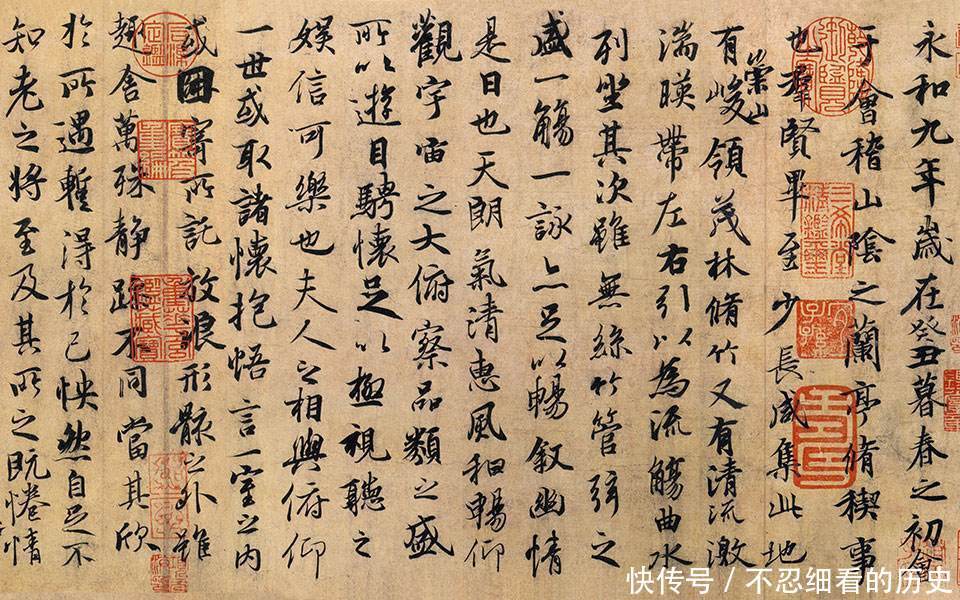 永和九年歲在癸丑暮春之初會
于會稽山陰之蘭亭脩稧事
也羣賢畢至少長咸集此地
有崇山峻領茂林脩竹又有清流激
湍暎帶左右引以為流觴曲水
列坐其次雖無絲竹管弦之
盛一觴一詠亦足以暢敘幽情
是日也天朗氣清惠風和暢仰
觀宇宙之大俯察品類之盛
所以遊目騁懷足以極視聽之
娛信可樂也夫人之相與俯仰
一世或取諸懷抱悟言一室之內
或因寄所託放浪形骸之外雖
趣舍萬殊静躁不同當其欣
於所遇暫得於己怏然自足不
知老之將至及其所之既惓情
快传号 / 不忍细看的历史